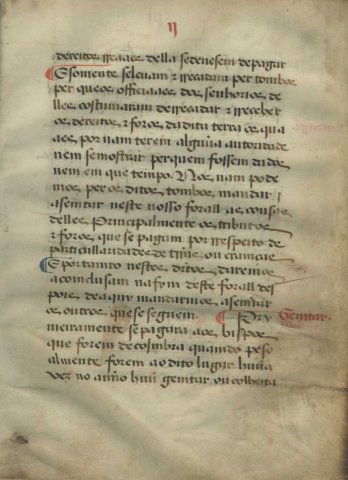 ij
dereitos reaaes della se devesem de pagar
Somente se levam & recadam per tombos
per que os officiaaes dos senhorios de
lles costumaram de rrecadar & rreceber
os dereitos & foros da dita terra os qua
aes por nam terem alguũa autoridade
nem se mostrar per quem fossem dados
nem em que tempo. Nos nam pode
mos per os ditos tombos mandar
asemtar neste nosso forall as cousas
delles Principalmente os tributos
& foros que se pagam por rrespeito de
particullaridades de
E portamto nestes ditos daremos
a comclusam na fym deste forall des
pois de aquy mandarmos asemtar
os outros que se seguem. Pry Gemtar.
meiramente se pagara aos bispos
que forem de coimbra quamdo peso
almente forem ao dito lugar huũa
vez no anno huũ gemtar ou colheita